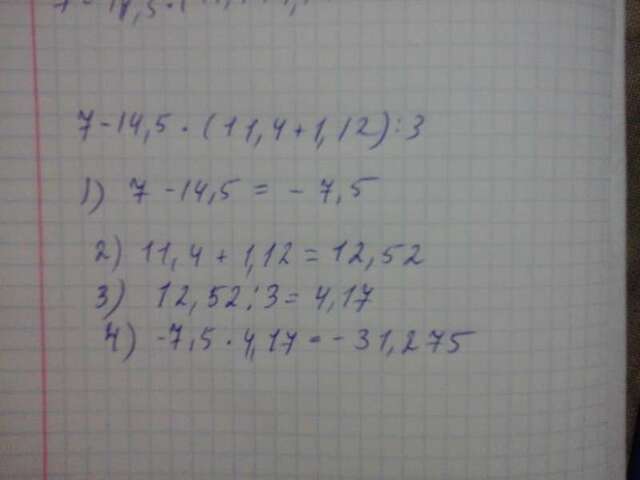 7-14,5·(11,4+1,12):3
1) 7-14,5=-7,5
2) 11,4+1,12=12,52
3) 12,52:3=4,17
4) -7,5·4,17=-31,275